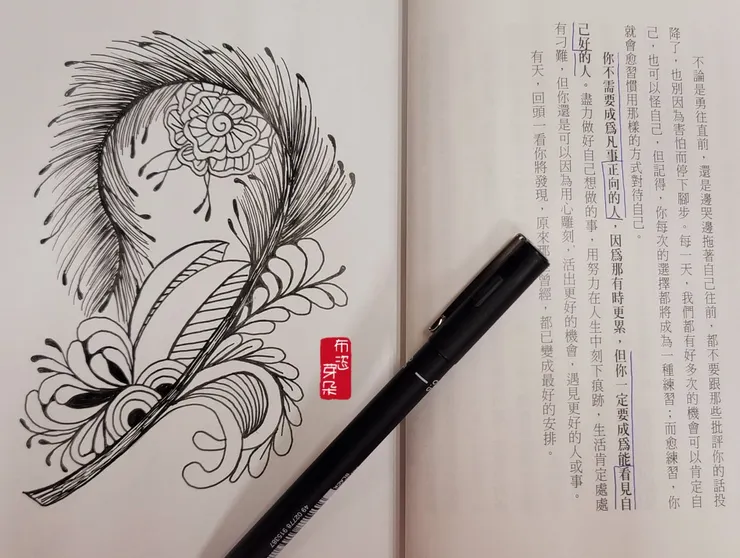 不論是勇往直前，還是邊哭邊拖著自己往前，都不要跟那些批評你的話投
降了，也別因為害怕而停下腳步。每一天，我們都有好多次的機會可以肯定自
己，也可以怪自己，但記得，你每次的選擇都將成為一種練習；而愈練習，你
就會愈習慣用那樣的方式對待自己。
你不需要成爲凡事正向的人，因爲那有時更累，但你一定要成爲能看見自
己好的人。盡力做好自己想做的事，用努力在人生中刻下痕跡，生活肯定處處
有刁難，但你還是可以因為用心雕刻，活出更好的機會，遇見更好的人或事。
有天，回頭一看你將發現，原來曾經，都已變成最好的安排。
芽朵
49 02778 915387